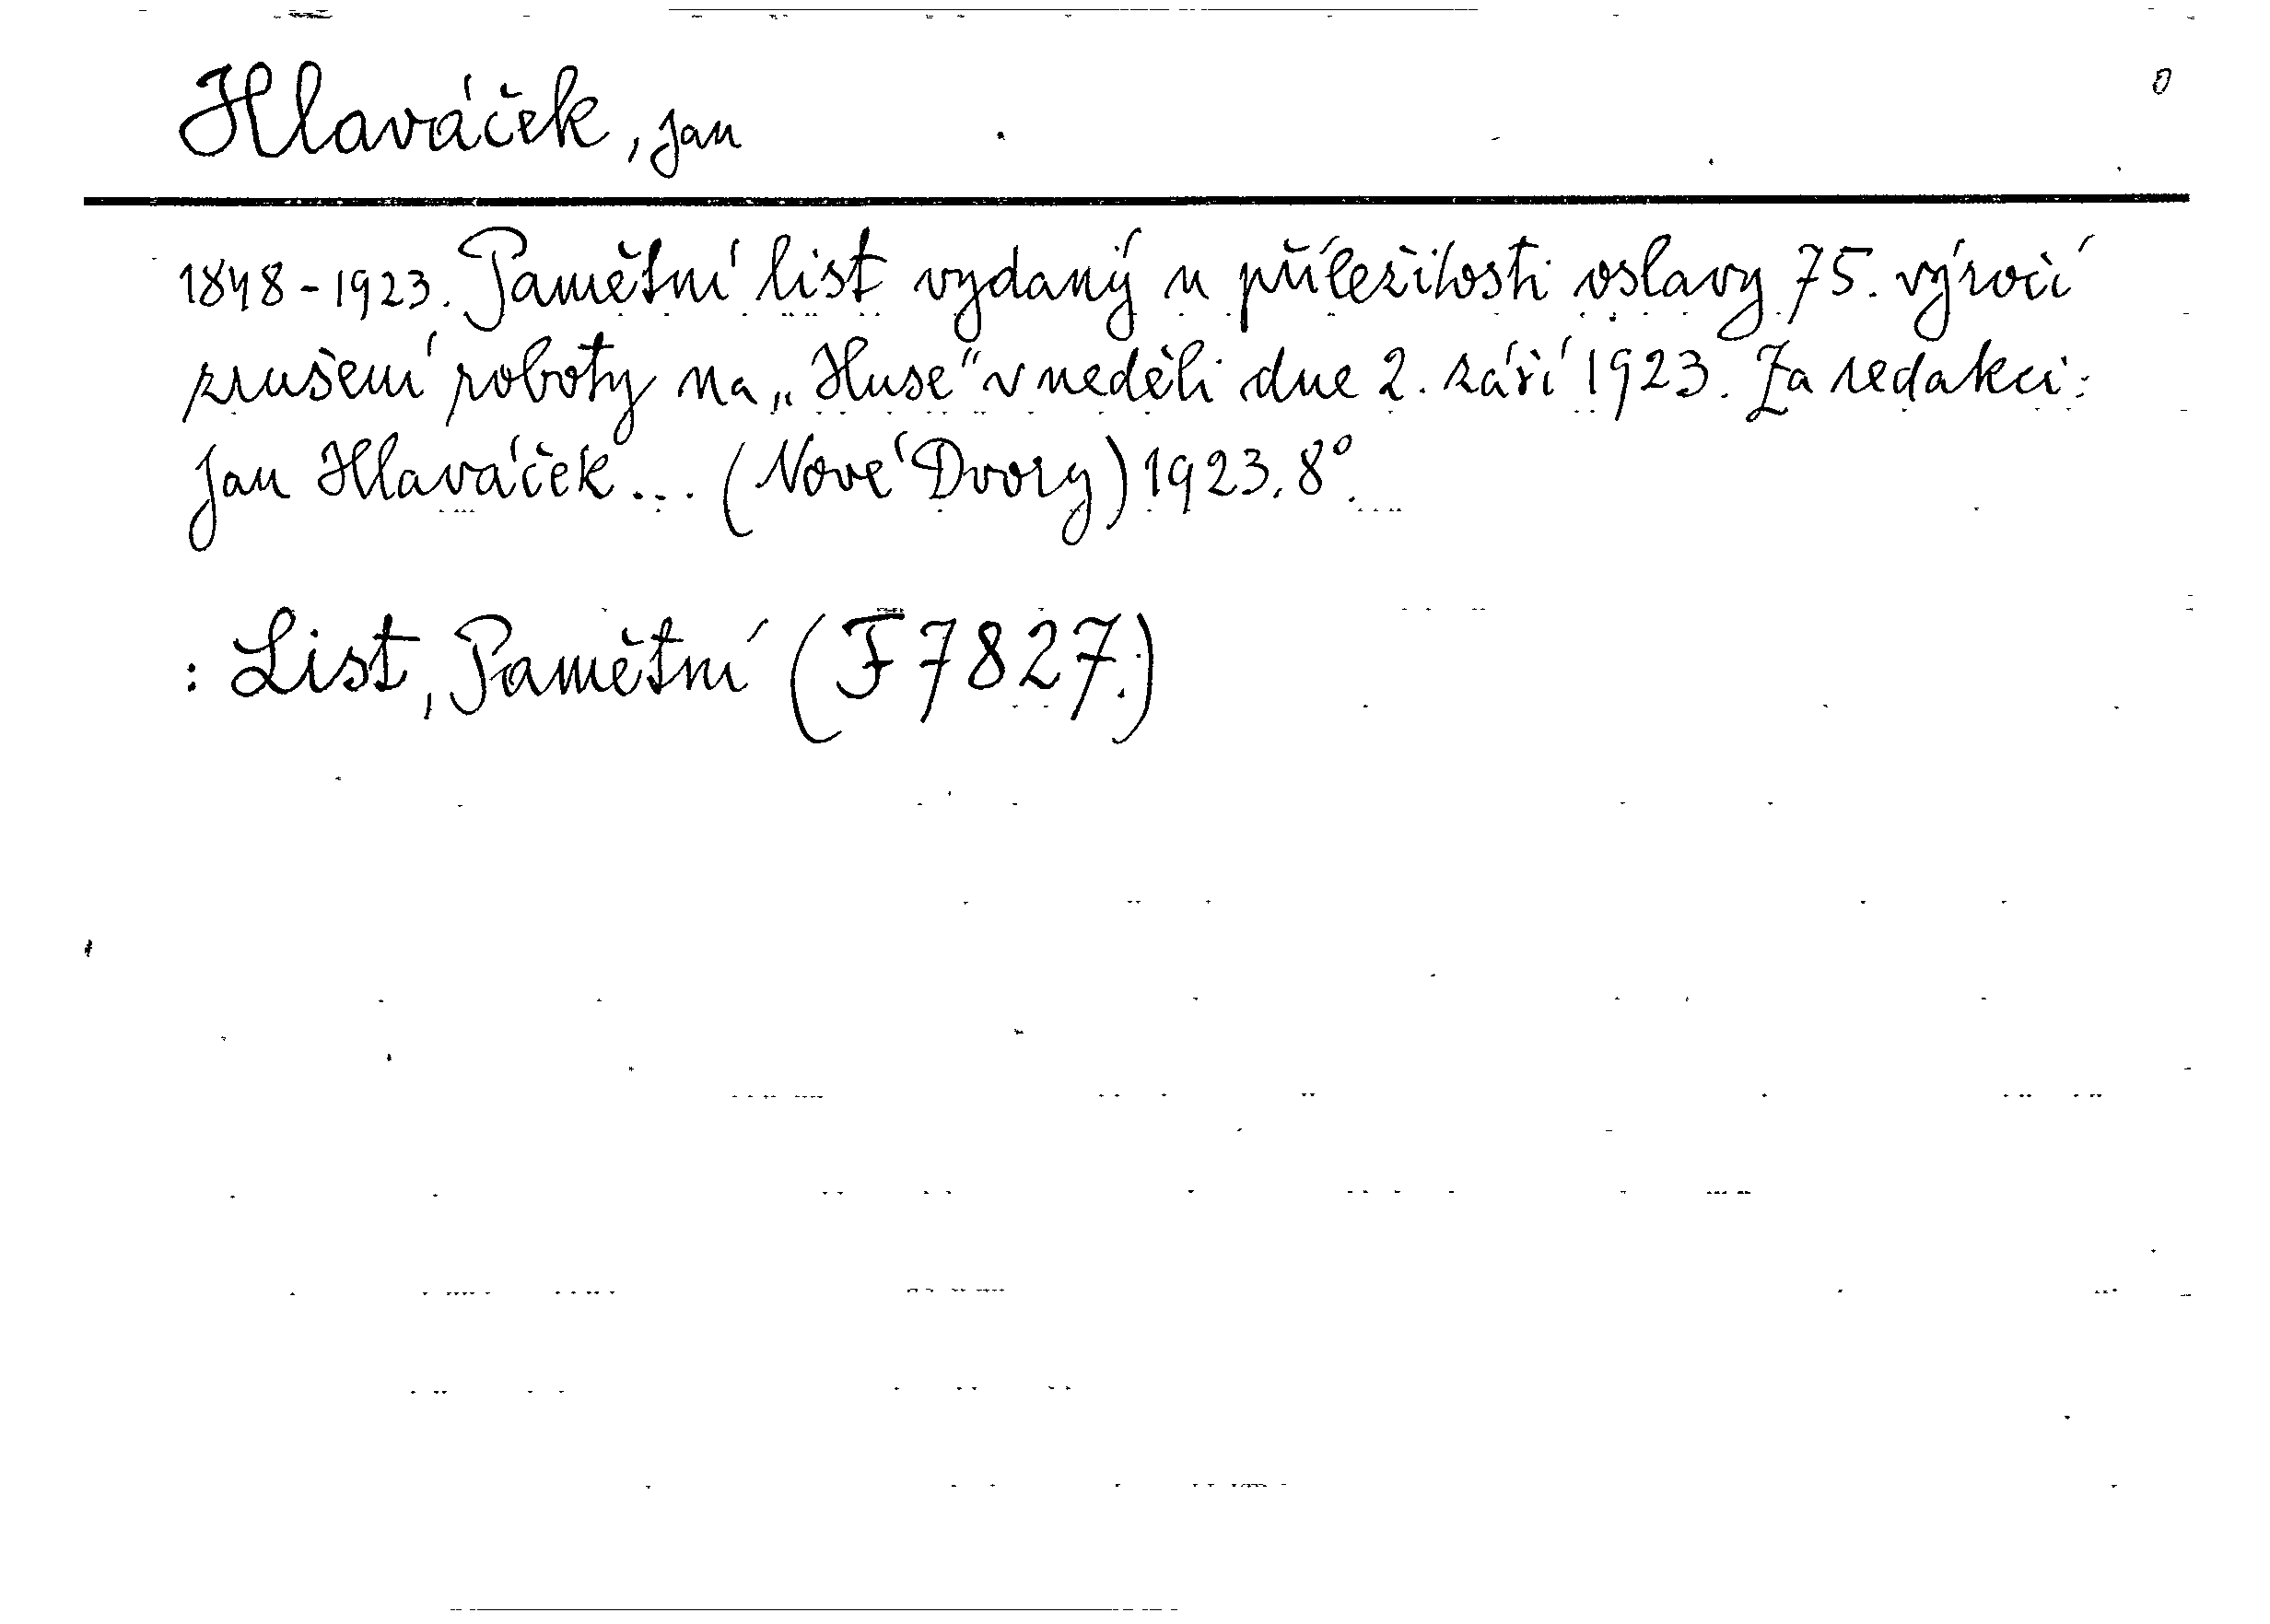 Hlaváček, Jan
0
1848-1923. Pamětní list vydaný u příležitosti oslavy 75. výročí
zrušení roboty na „Huse“ v neděli dne 2. září 1923. Za redakci:
Jan Hlaváček... (Nové Dvory) 1923. 8°.
: List, Pamětní (F 7827.)